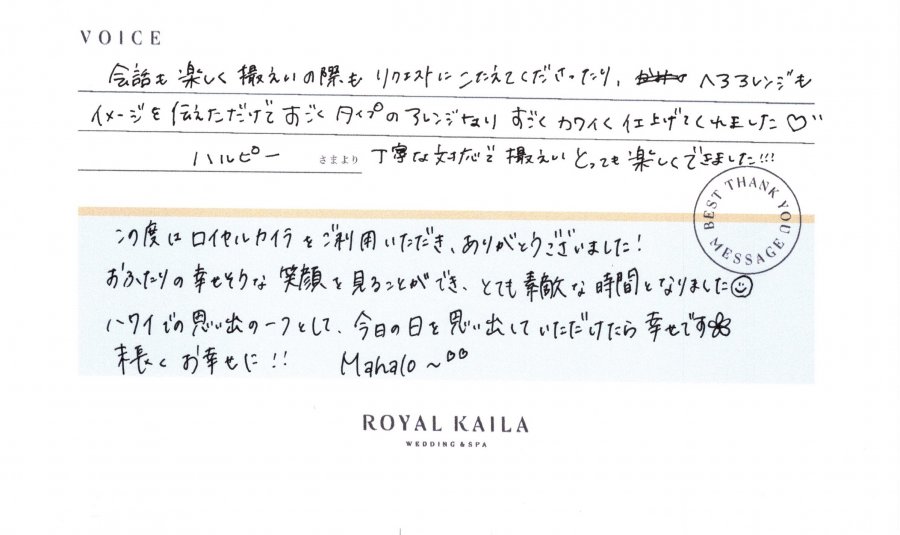 VOICE
会話も楽しく撮えいの際もリクエストにこたえてくださったり、へアアレンジも
イメージを伝えただけですごくタイプのアレンジなりすごくカワイく仕上げてくれました♡
ハルピー さまより 丁寧な対応で撮えいとっても楽しくできました!!!
BEST THANK YOU MESSAGE
この度はロイヤルカイラをご利用いただき、ありがとうございました!
おふたりの幸せそうな笑顔を見ることができ、とても素敵な時間となりました☺
ハワイでの思い出の一つとして、今日の日を思い出していただけたら幸せです
末長くお幸せに!! Mahalo~
ROYAL KAILA
WEDDING & SPA